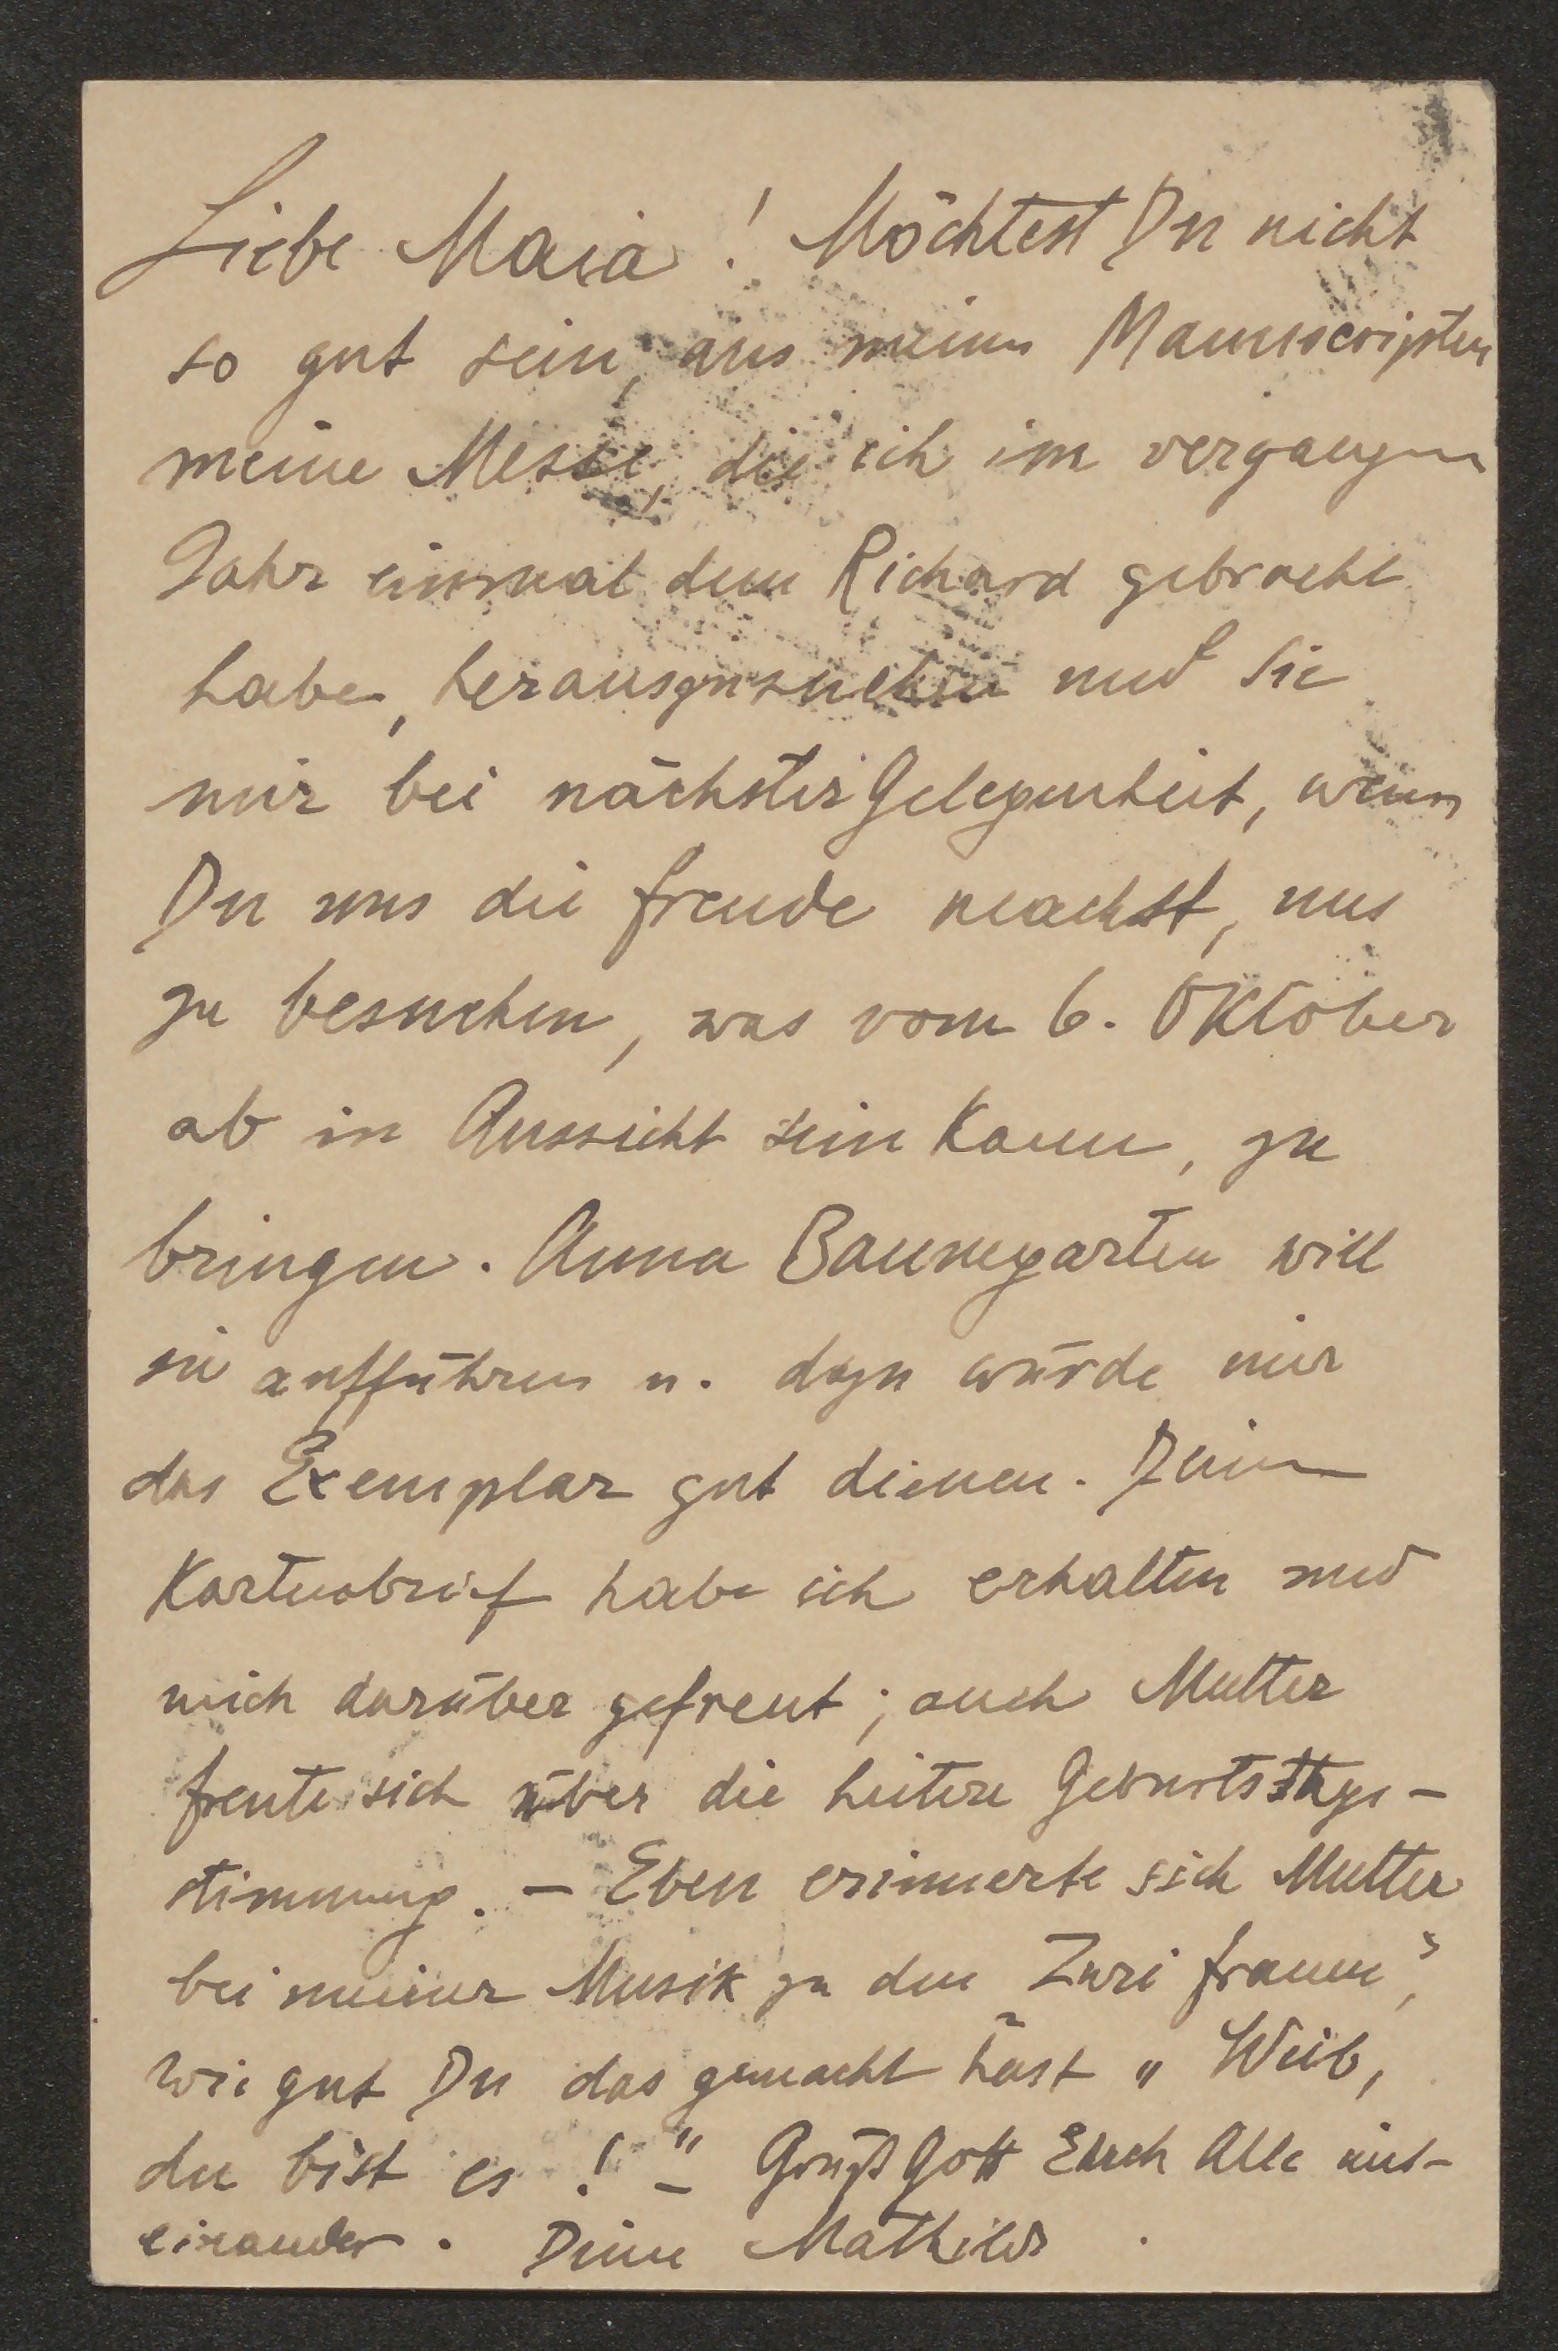 Liebe Maia! Möchtest Du nicht
so gut sein, aus meinen Manuscripten
meine Messe, die ich im vergangen
Jahr einmal dem Richard gebracht
habe, herauszusuchen und sie
mir bei nächster Gelegenheit, wenn
Du uns die Freude machst, uns
zu besuchen, was vom 6. Oktober
ab in Aussicht sein kann, zu
bringen. Anna Baumgarten will
sie aufführen u. dazu würde mir
das Exemplar gut dienen. Deinen
Kartenbrief habe ich erhalten und
mich darüber gefreut; auch Mutter
freute sich über die heitere Geburtstags-
stimmung. – Eben erinnerte sich Mutter
bei meiner Musik zu den "Zwei Frauen",
wie gut Du das gemacht hast "Weib,
du bist es!" – Grüß Gott Euch Alle mit-
einander. Deine Mathilde.